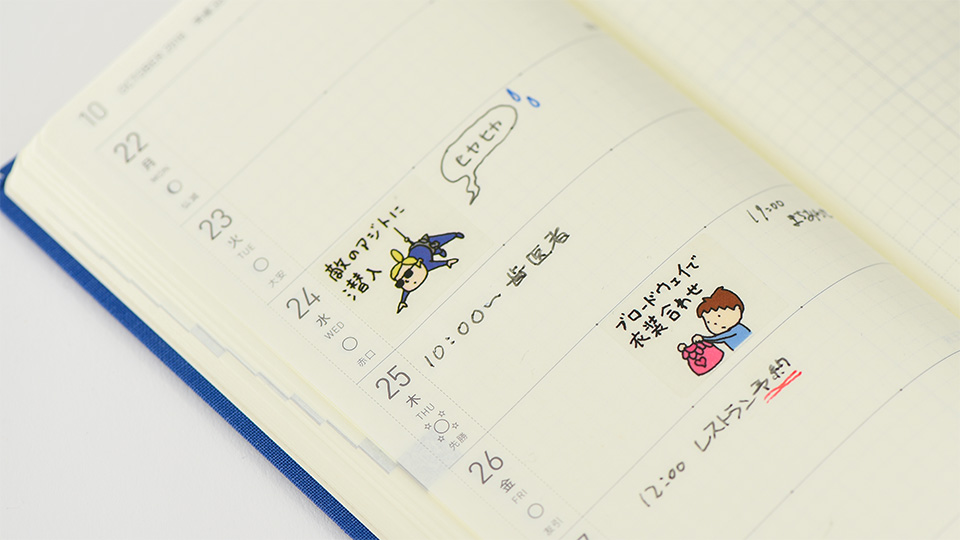 10
OCTOBER 2018
22
月
MON
仏滅
23
火
TUE
大安
ヒヤヒヤ
敵のアジトに
潜入
24
水
WED
赤口
10:00〜 歯医者
25
木
THU
先勝
19:00
ブロードウェイで
衣装合わせ
26
金
FRI
友引
12:00 レストラン予約